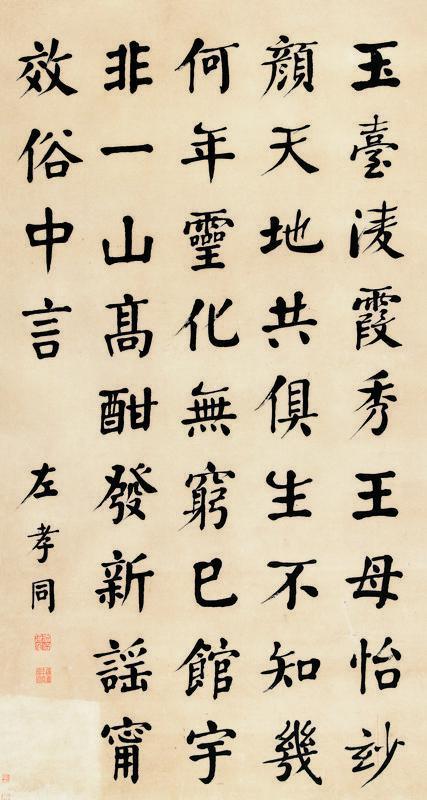 玉臺淩霞秀王母怡玅
顔天地共俱生不知幾
何年靈化無窮巳館宇
非一山髙酣發新謡甯
效俗中言
左孝同